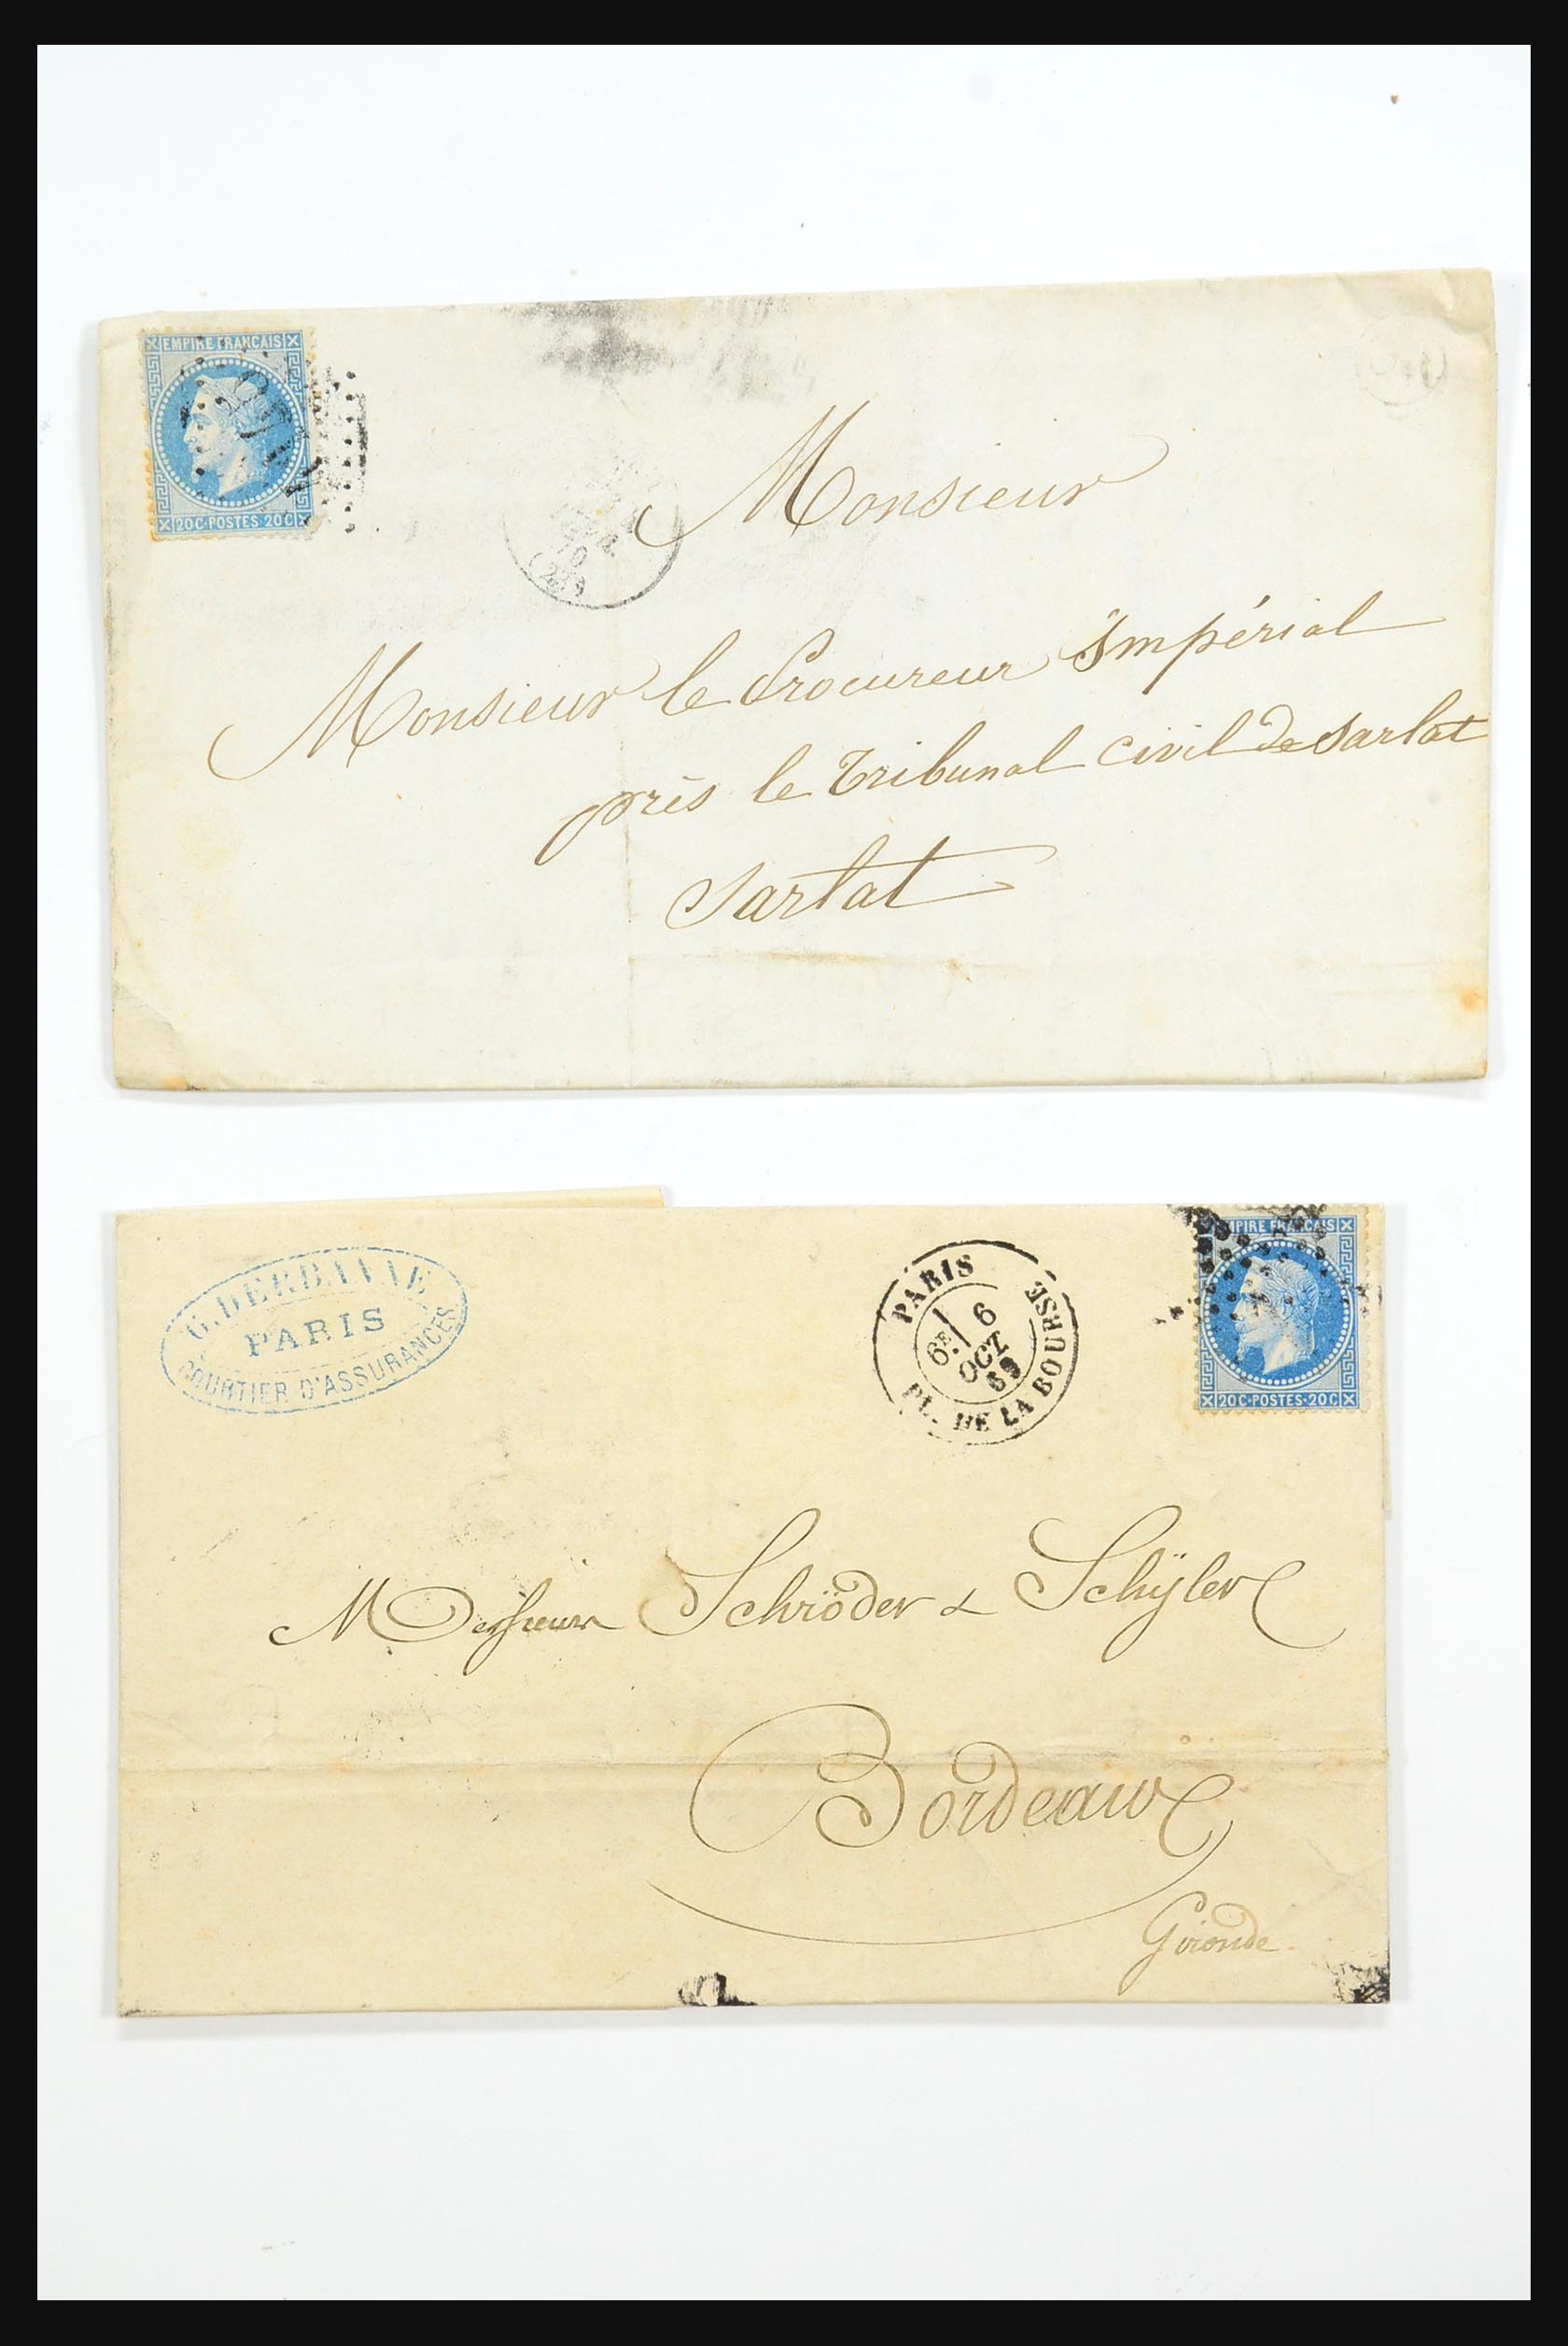 EMPIRE FRANCAIS
20C·POSTES·20C
70
(23)
Monsieur
Monsieur le Procureur Impérial
près le Tribunal civil de Sarlat
Sarlat
G. DERBAVAIE
PARIS
COURTIER D'ASSURANCES
PARIS
6E 6
OCT
69
PL. DE LA BOURSE
EMPIRE FRANCAIS
20C·POSTES·20C
Messieurs Schröder & Schÿler
Bordeaux
Gironde